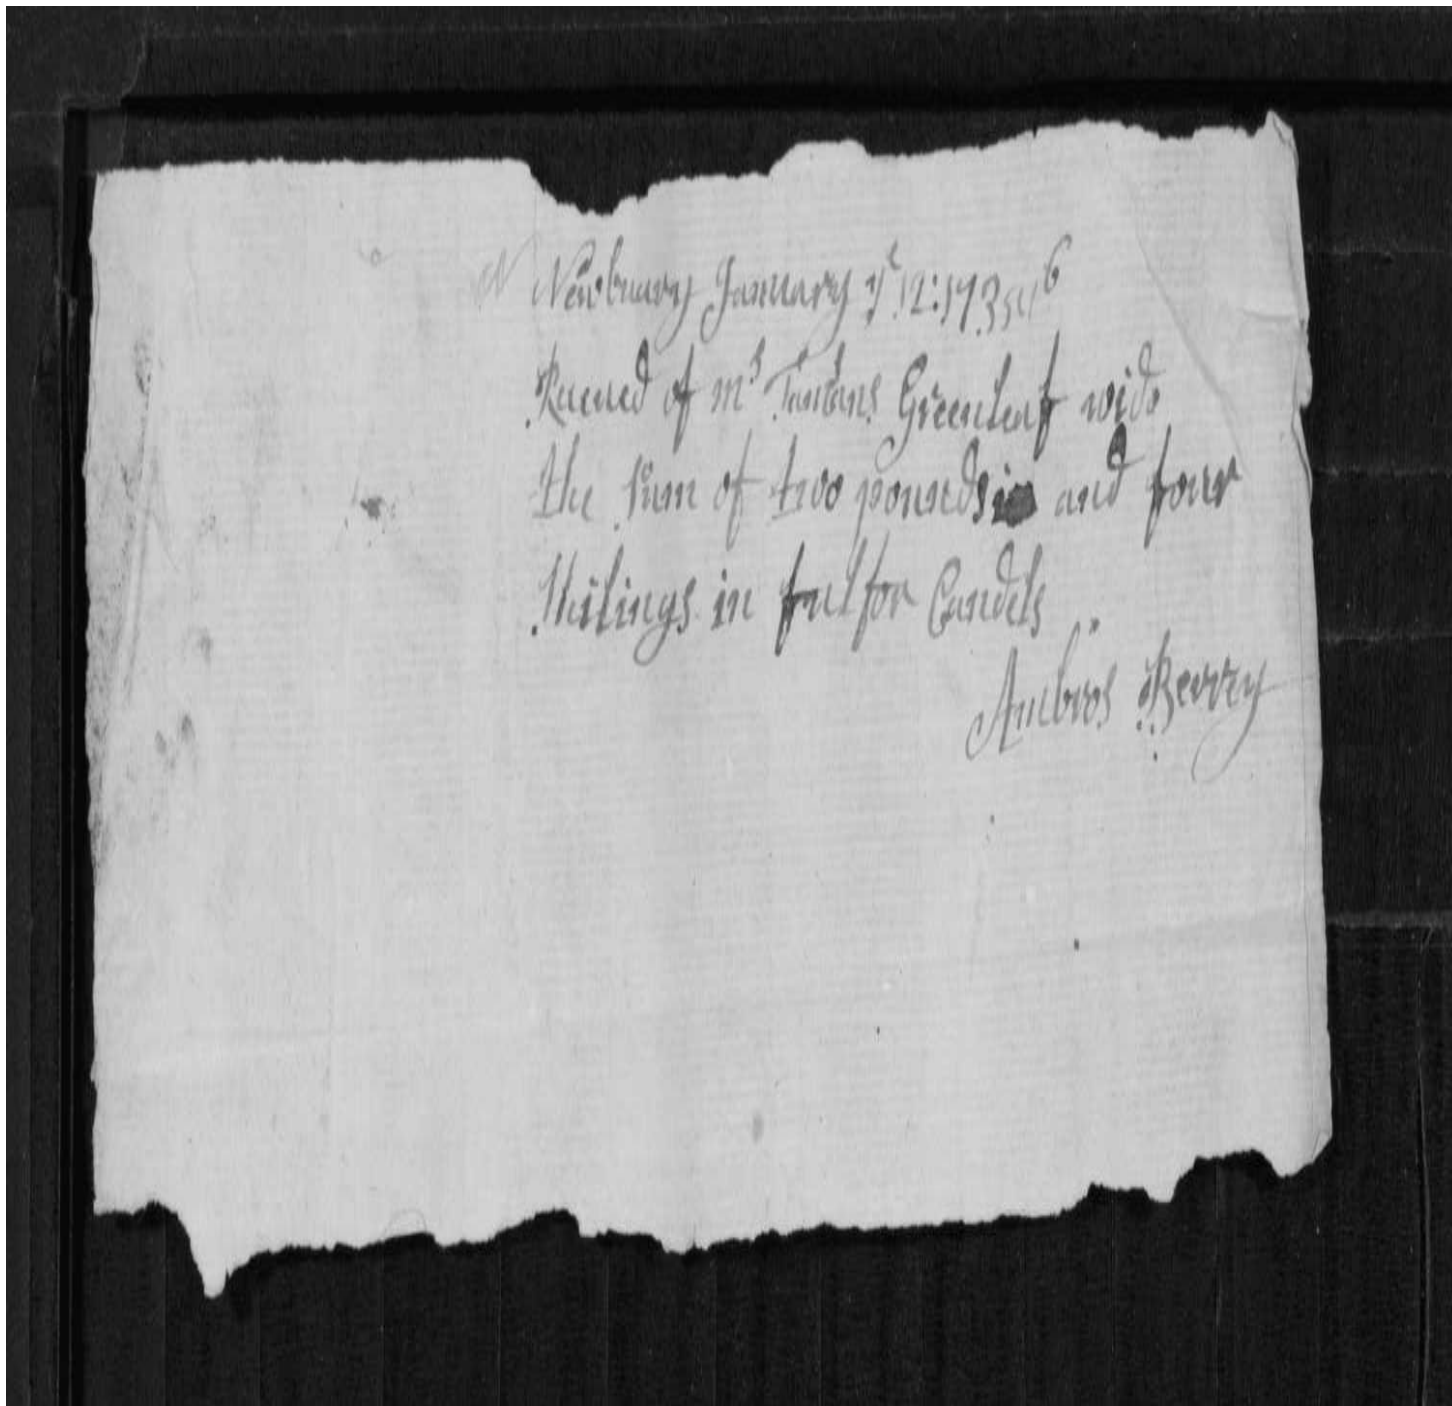 N Newbuary January ye 12: 1735/6
Receued of mrs Greenleaf wido
the sum of two pounds and four
shilings in ful for Candels
Ambros Berry